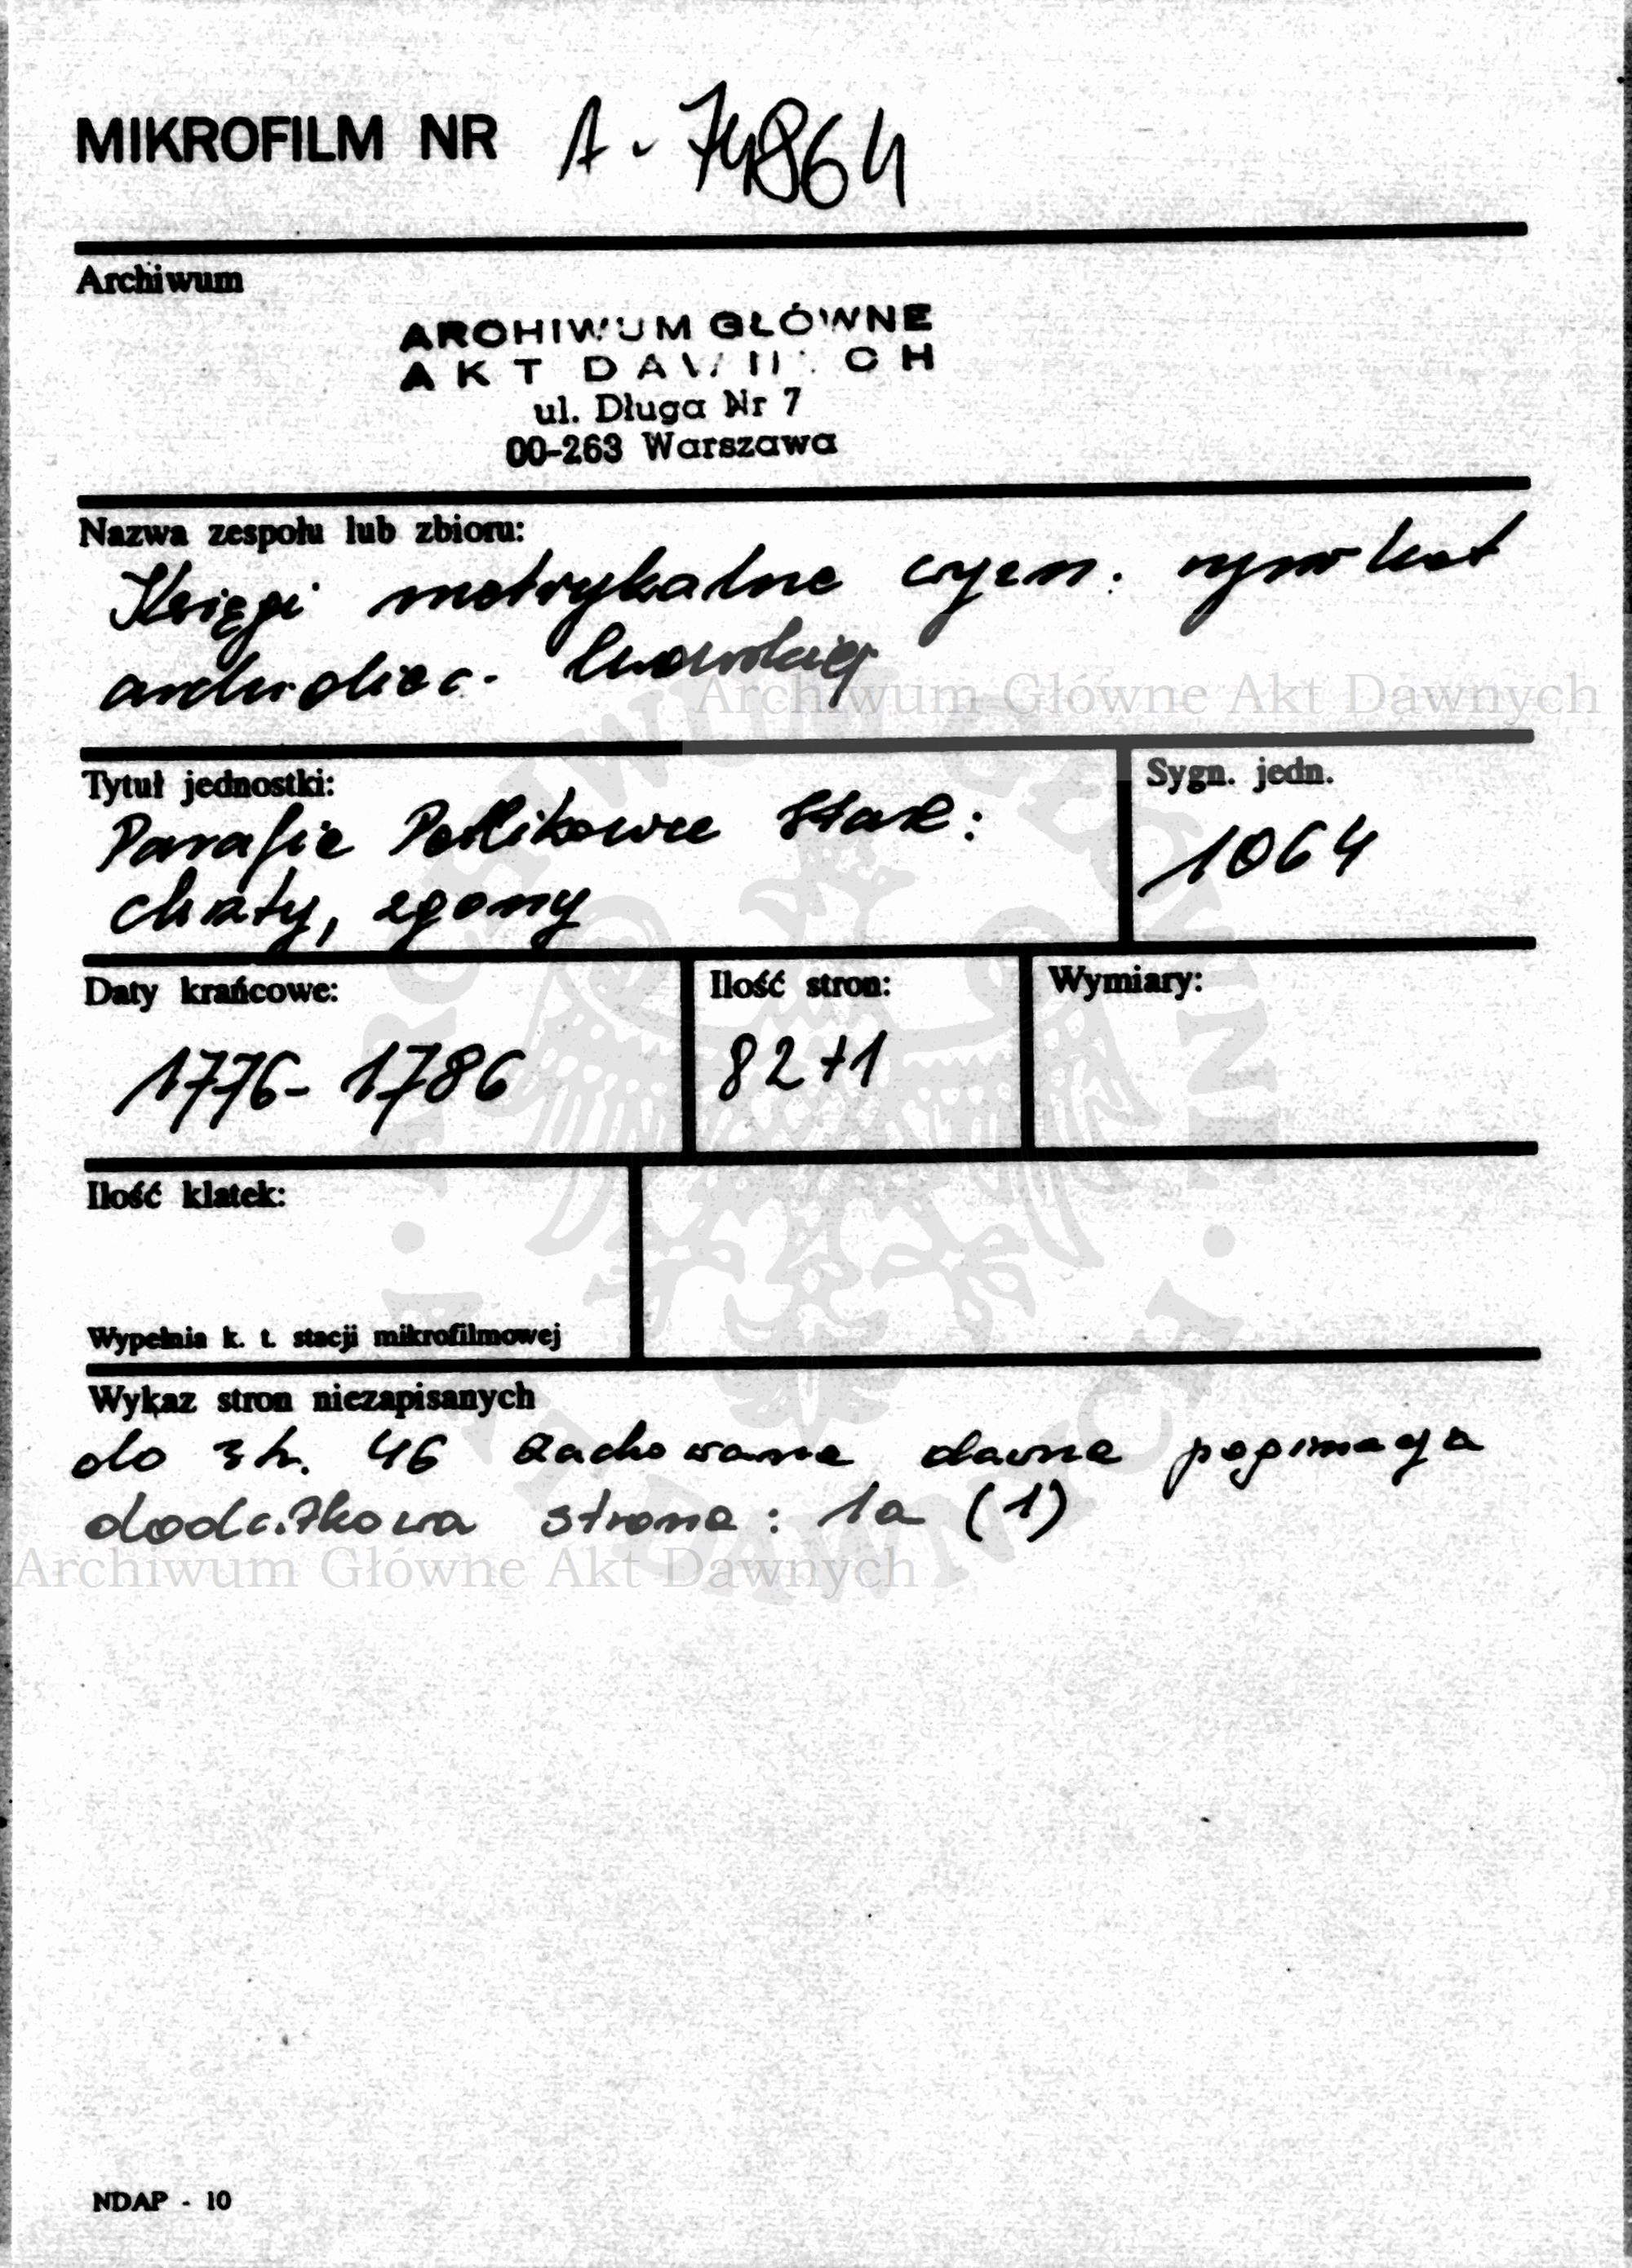 MIKROFILM NR A-74864
Archiwum
ARCHIWUM GŁÓWNE
AKT DAWNYCH
ul. Długa Nr 7
00-263 Warszawa
Nazwa zespołu lub zbioru:
Księgi metrykalne rzym. kat
archidiec. lwowskiej
Archiwum Główne Akt Dawnych
Tytuł jednostki:
Parafie Petlikowce Stare:
chrzty, zgony
Sygn. jedn.
1064
Daty krańcowe:
1776-1786
Ilość stron:
82+1
Wymiary:
Ilość klatek:
Wypełnia k. t. stacji mikrofilmowej
Wykaz stron niezapisanych
do str. 46 zachowana dawna paginacja
dodatkowa strona: 1a (1)
Archiwum Główne Akt Dawnych
NDAP - 10